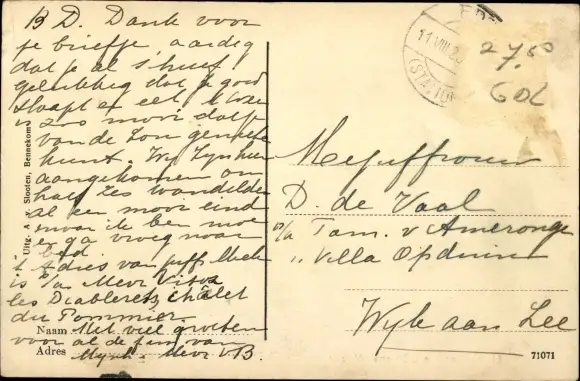 B D. Dank voor
je briefje, aardig
dat je al schreef
gelukkig dat je goed
slaapt en eet,
is zoo mooi dat je
van de zon genieten
kunt. Wij zijn hier
aangekomen om
half zes wandelde
al een mooi eind
maar ik ben moe
en ga vroeg naar
bed
't Adres van juffr.
is p/a Mevr
les Diablerets châlet
du Pommier.
Naam Met veel groeten
voor al de fam. van
Adres Mevr v. B.
Uitg. A. v. Slooten, Bennekom
EDE
11 VIII 2
(STATION)
27.50
GDL
Mejuffrouw
D. de Vaal
p/a Fam. v Amerongen
„ Villa Opduin
Wijk aan Zee
71071